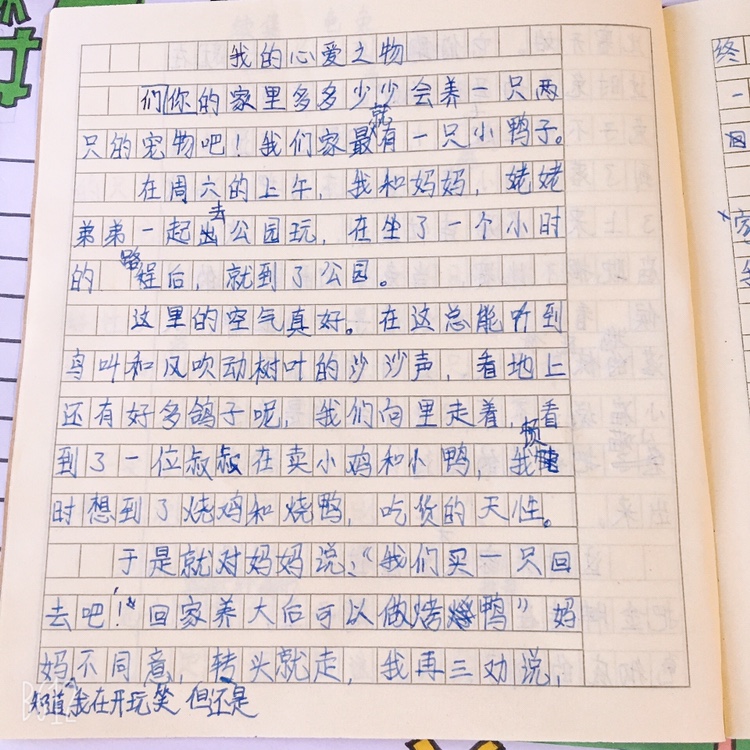 我的心爱之物
们你的家里多多少少会养一只两
只的宠物吧！我们家最就有一只小鸭子。
在周六的上午，我和妈妈，姥姥
弟弟一起去公园玩，在坐了一个小时
的路程后，就到了公园。
这里的空气真好。在这总能听到
鸟叫和风吹动树叶的沙沙声，看地上
还有好多鸽子呢，我们向里走着，看
到了一位叔叔在卖小鸡和小鸭，我顿
时想到了烧鸡和烧鸭，吃货的天性。
于是就对妈妈说：“我们买一只回
去吧！回家养大后可以做烤鸭”妈
妈不同意，转头就走，我再三劝说，
知道我在开玩笑 但还是
终
一
家